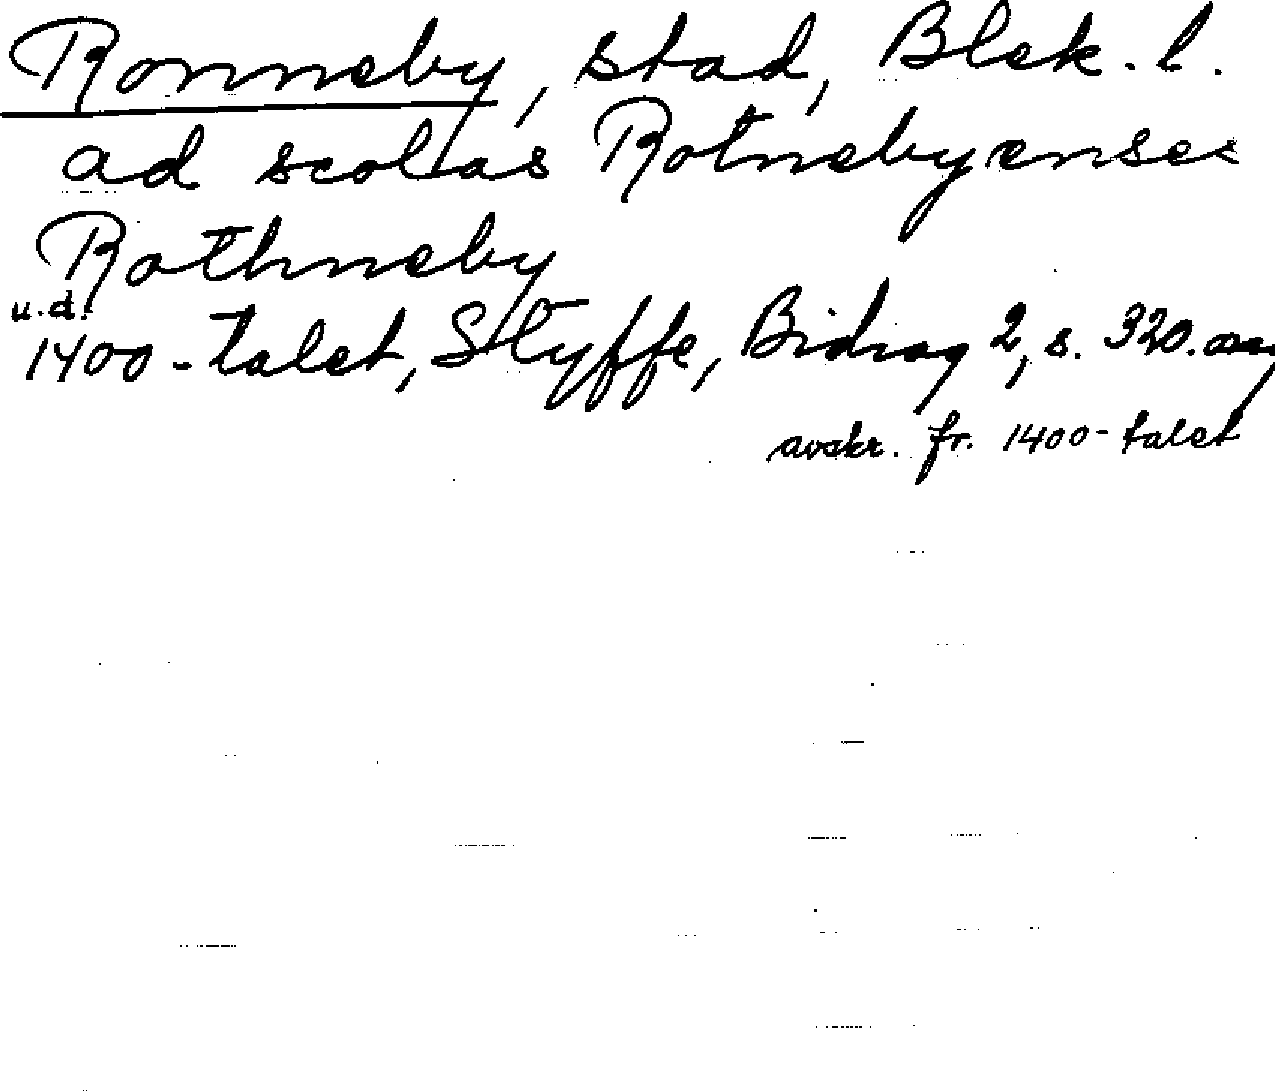 Ronneby, stad, Blek. l.
ad scolas Rotnebyenses
Rothneby
u.d.
1400-talet, Styffe, Bidrag 2, s. 320.
avskr. fr. 1400-talet